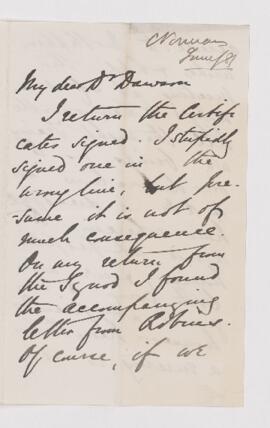 C Norman
June/81
My dear Dr Dawson
I return the Certifi
cates signed. I stupidly
signed one in the
wrong line, but pre-
sume it is not of
much consequence.
On my return from
the Synod I found
the accompanying
letter from Robins.
Of course, if we